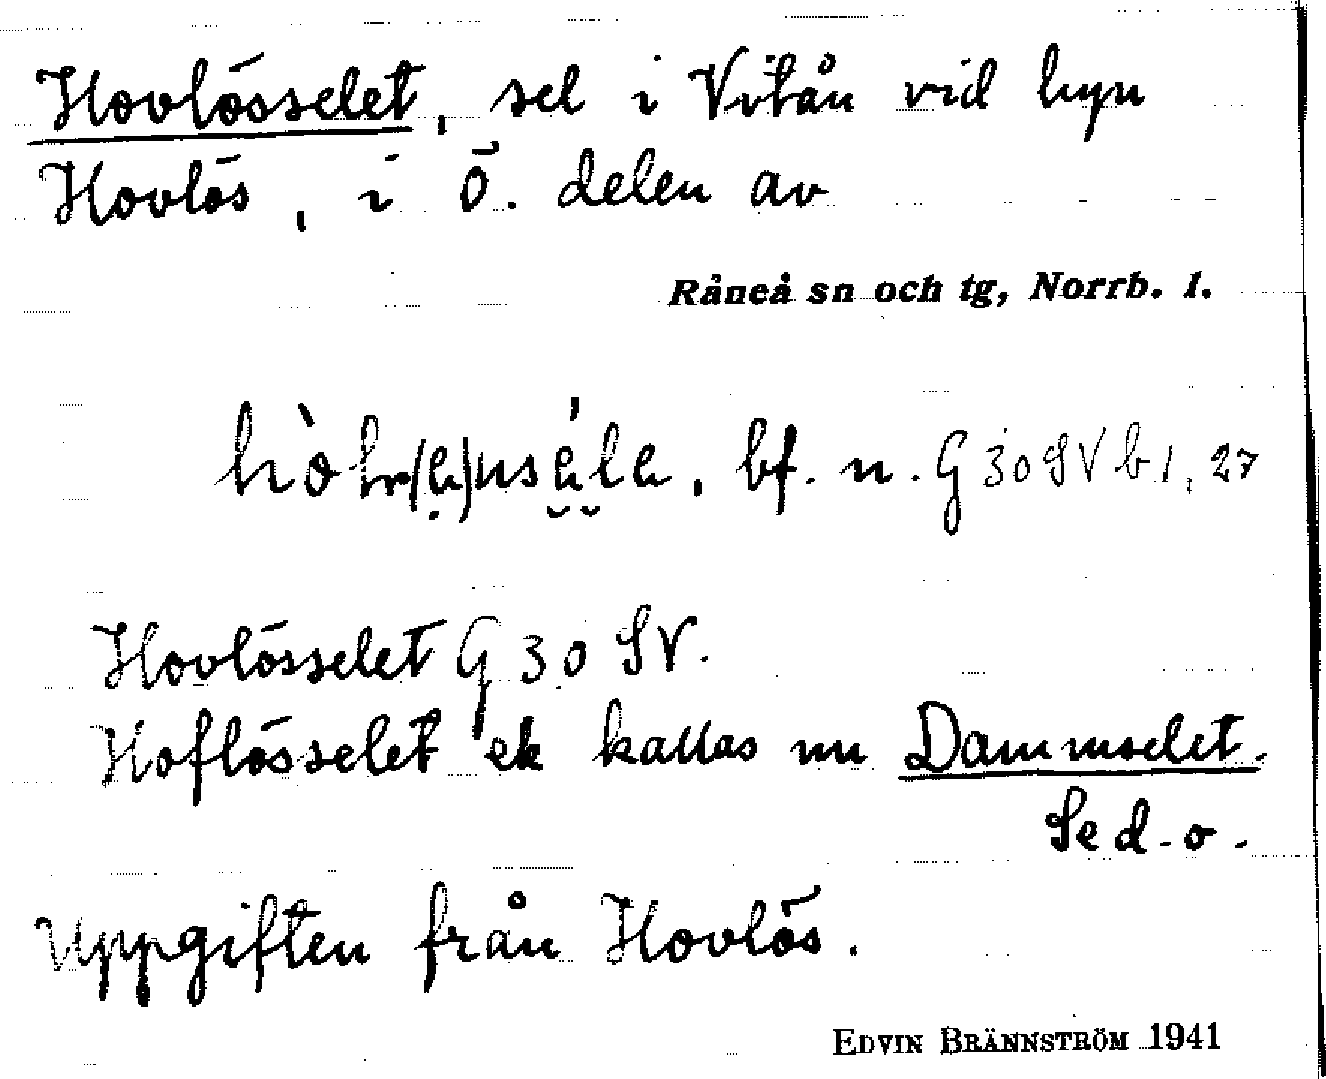 Hovlösselet, sel i Vitån vid byn
Hovlös, i ö. delen av
Råneå sn och tg, Norrb. l.
bf. n. G 30 SV b 1, 27
Hovlösselet G 30 SV.
Hoflösselet ek kallas nu Dammselet.
Se d. o.
Uppgiften från Hovlös.
EDVIN BRÄNNSTRÖM 1941